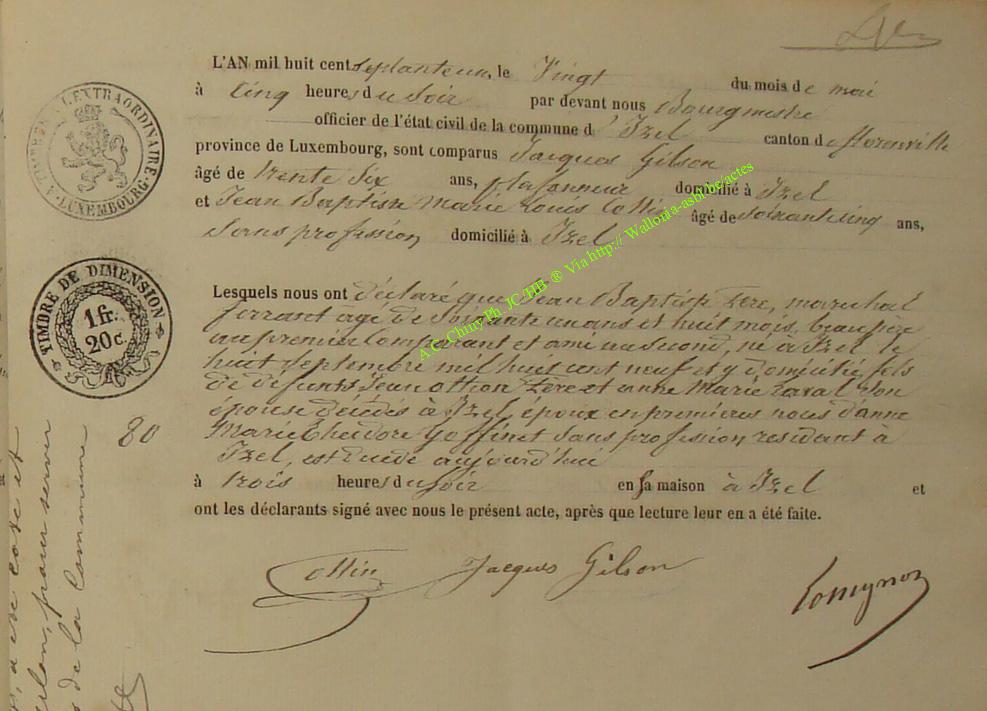 L'AN mil huit cent septanteun, le Vingt du mois de mai
à Cinq heures du Soir par devant nous Bourgmestre
officier de l'état civil de la commune d'Izel canton de florenville
province de Luxembourg, sont comparus Jacques Gilson
âgé de trente Six ans, plafonneur domicilié à Izel
et Jean Baptiste Marie Louis âgé de Soixantecinq ans,
Sans profession domicilié à Izel
Lesquels nous ont déclaré que Jean Baptiste maréchal
ferrant agé de Soixante unans et huit mois, beau pere
au premier Comparant et ami au Second, né à Izel le
huit Septembre mil huit cent neuf et y domicilié, fils
de défunts Jean et anne Marie Laval Son
épouse décédés à Izel, époux en premières nous d'anne
Marie Goffinet Sans profession residant à
Izel, est aujourd'hui
à trois heures du Soir en sa maison à Izel et
ont les déclarants signé avec nous le présent acte, après que lecture leur en a été faite.
Collin Jacques Gilson
TIMBRE A L'EXTRAORDINAIRE
LUXEMBOURG
TIMBRE DE DIMENSION
1 fr.
20 c.
80
pour servir
de la Commune
A.C. Chiny Ph JC HB ® Via http:// Wallonia-asbl.be/actes